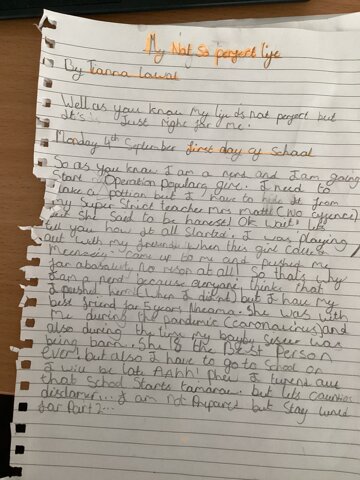 My Not so perfect life
By Tianna Lawal
Well as you know My life is not perfect but
It's... Just right for me.
Monday 4th September first day of School
So as you know I am a nerd and I am going
Start Operation Popularg girl. I need to
make a potion but I have to hide it from
my Super Strict teacher mrs (No offence)
but she said to be honest! Ok wait lets
tell you how it all started. I was playing
out with my freinds when this girl called
came up to me and Pushed me
for abaslutly no rison at all! So thats why
I am a nerd because everyone thinks that
I pushed her! (When I did'nt) but I have my
best friend for 5 years Nneama. She was with
me during the Pandemic (coronavirus) and
also during the time my bayby Sister was
being born. She IS the BEST Person
ever! but also I have to go to School or
I will be late AAhh! Phew I turend out
that School Starts tamaraw. but lets countino
disclamer... I am not Prepared but Stay tuned
for Part 2...